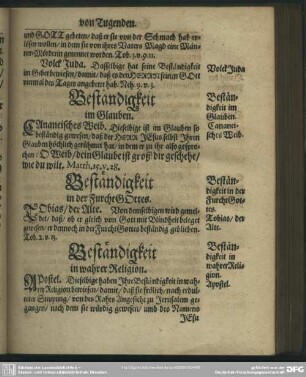 von Tugenden.
und GOTT gebeten/ daß er sie von der Schmach hab er-
lösen wollen/ in dem sie von ihres Vaters Magd eine Män-
ner-Mörderin genennet worden. Tob. 3. v. 9. 11.
Volck Juda. Dasselbige hat seine Beständigkeit
in Gebet bewiesen/ damit/ daß es den HERRN seinen GOtt
viermal des Tages angebetet hab. Neh. 9. v. 3.
Volck Juda
Beständigkeit
im Glauben.
Bestän-
digkeit im
Glauben.
Cananeisches Weib. Dieselbige ist im Glauben so
beständig gewesen/ daß der HERR JEsus selbst Ihren
Glauben höchlich gerühmet hat/ in dem er zu ihr also gespro-
chen/ O Weib/ dein Glaube ist groß/ dir geschehe/
wie du wilt. Matth. 15. v. 28.
Cananei-
sches Weib.
Beständigkeit
in der Furcht GOttes.
Bestän-
digkeit in der
Furcht Got-
tes.
Tobias/ der Alte. Von demselbigen wird gemel-
det/ daß/ ob er gleich von Gott mit Blindheit beleget
gewesen/ er dennoch in der Furcht Gottes beständig geblieben.
Tob. 2. v. 13.
Tobias/ der
Alte.
Beständigkeit
in wahrer Religion.
Bestän-
digkeit in
wahrer Reli-
gion.
Apostel. Dieselbige haben Ihre Beständigkeit in wah-
rer Religion bewiesen/ damit/ daß sie frölich/ nach erdul-
teter Steupung/ von des Rahts Angesicht zu Jerusalem ge-
gangen/ nach dem sie würdig gewesen/ umb des Namens
JEsu
Apostel.